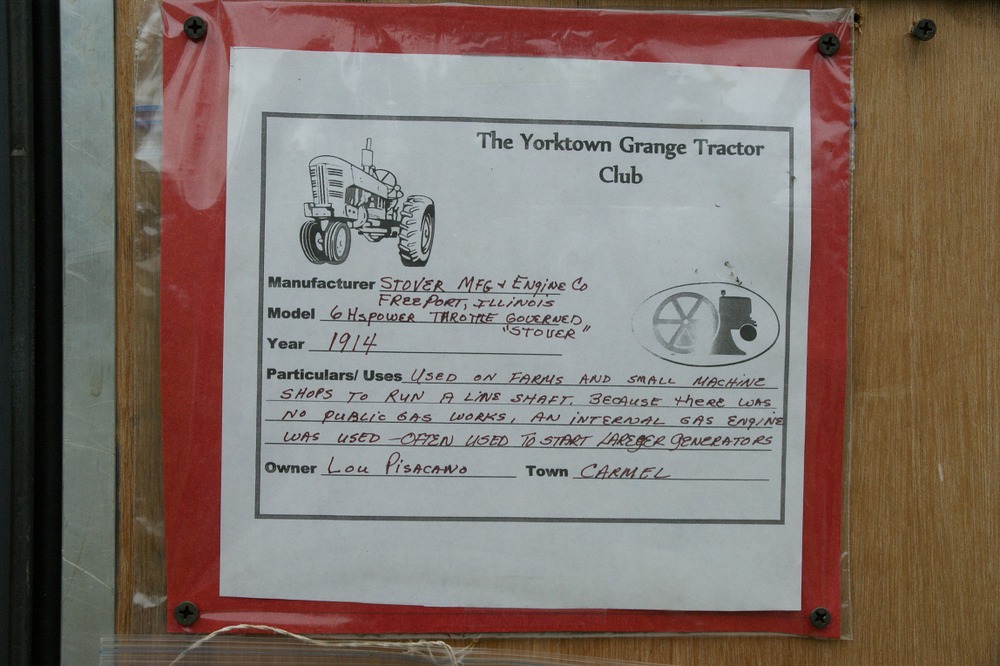 The Yorktown Grange Tractor
Club
Manufacturer STOVER MFG + ENGINE Co
FREEPORT, ILLINOIS
Model 6 HsPOWER THROTTLE GOVERNED
"STOVER"
Year 1914
Particulars/ Uses USED ON FARMS AND SMALL MACHINE
SHOPS TO RUN A LINE SHAFT. BECAUSE THERE WAS
NO PUBLIC GAS WORKS, AN INTERNAL GAS ENGINE
WAS USED - OFTEN USED TO START LAREGER GENERATORS
Owner Lou Pisacano Town CARMEL